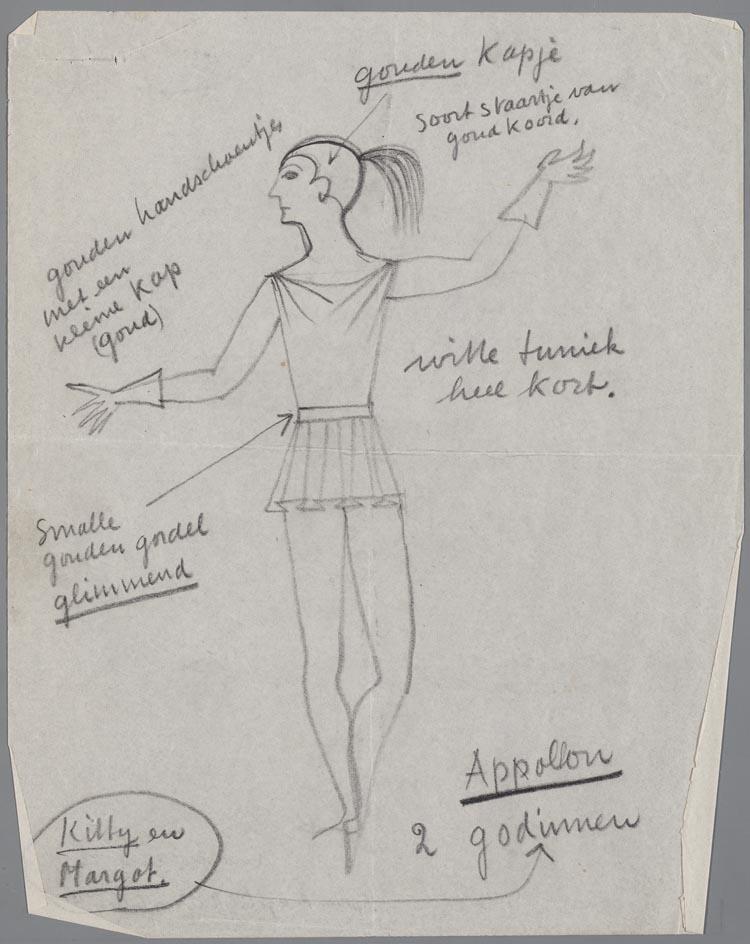 gouden kapje
soort staartje van
goud koord.
gouden handschoentjes
met een
kleine kap
(goud)
witte tuniek
heel kort.
Smalle
gouden gordel
glimmend
Appollon
2 godinnen
Kitty en
Margot.